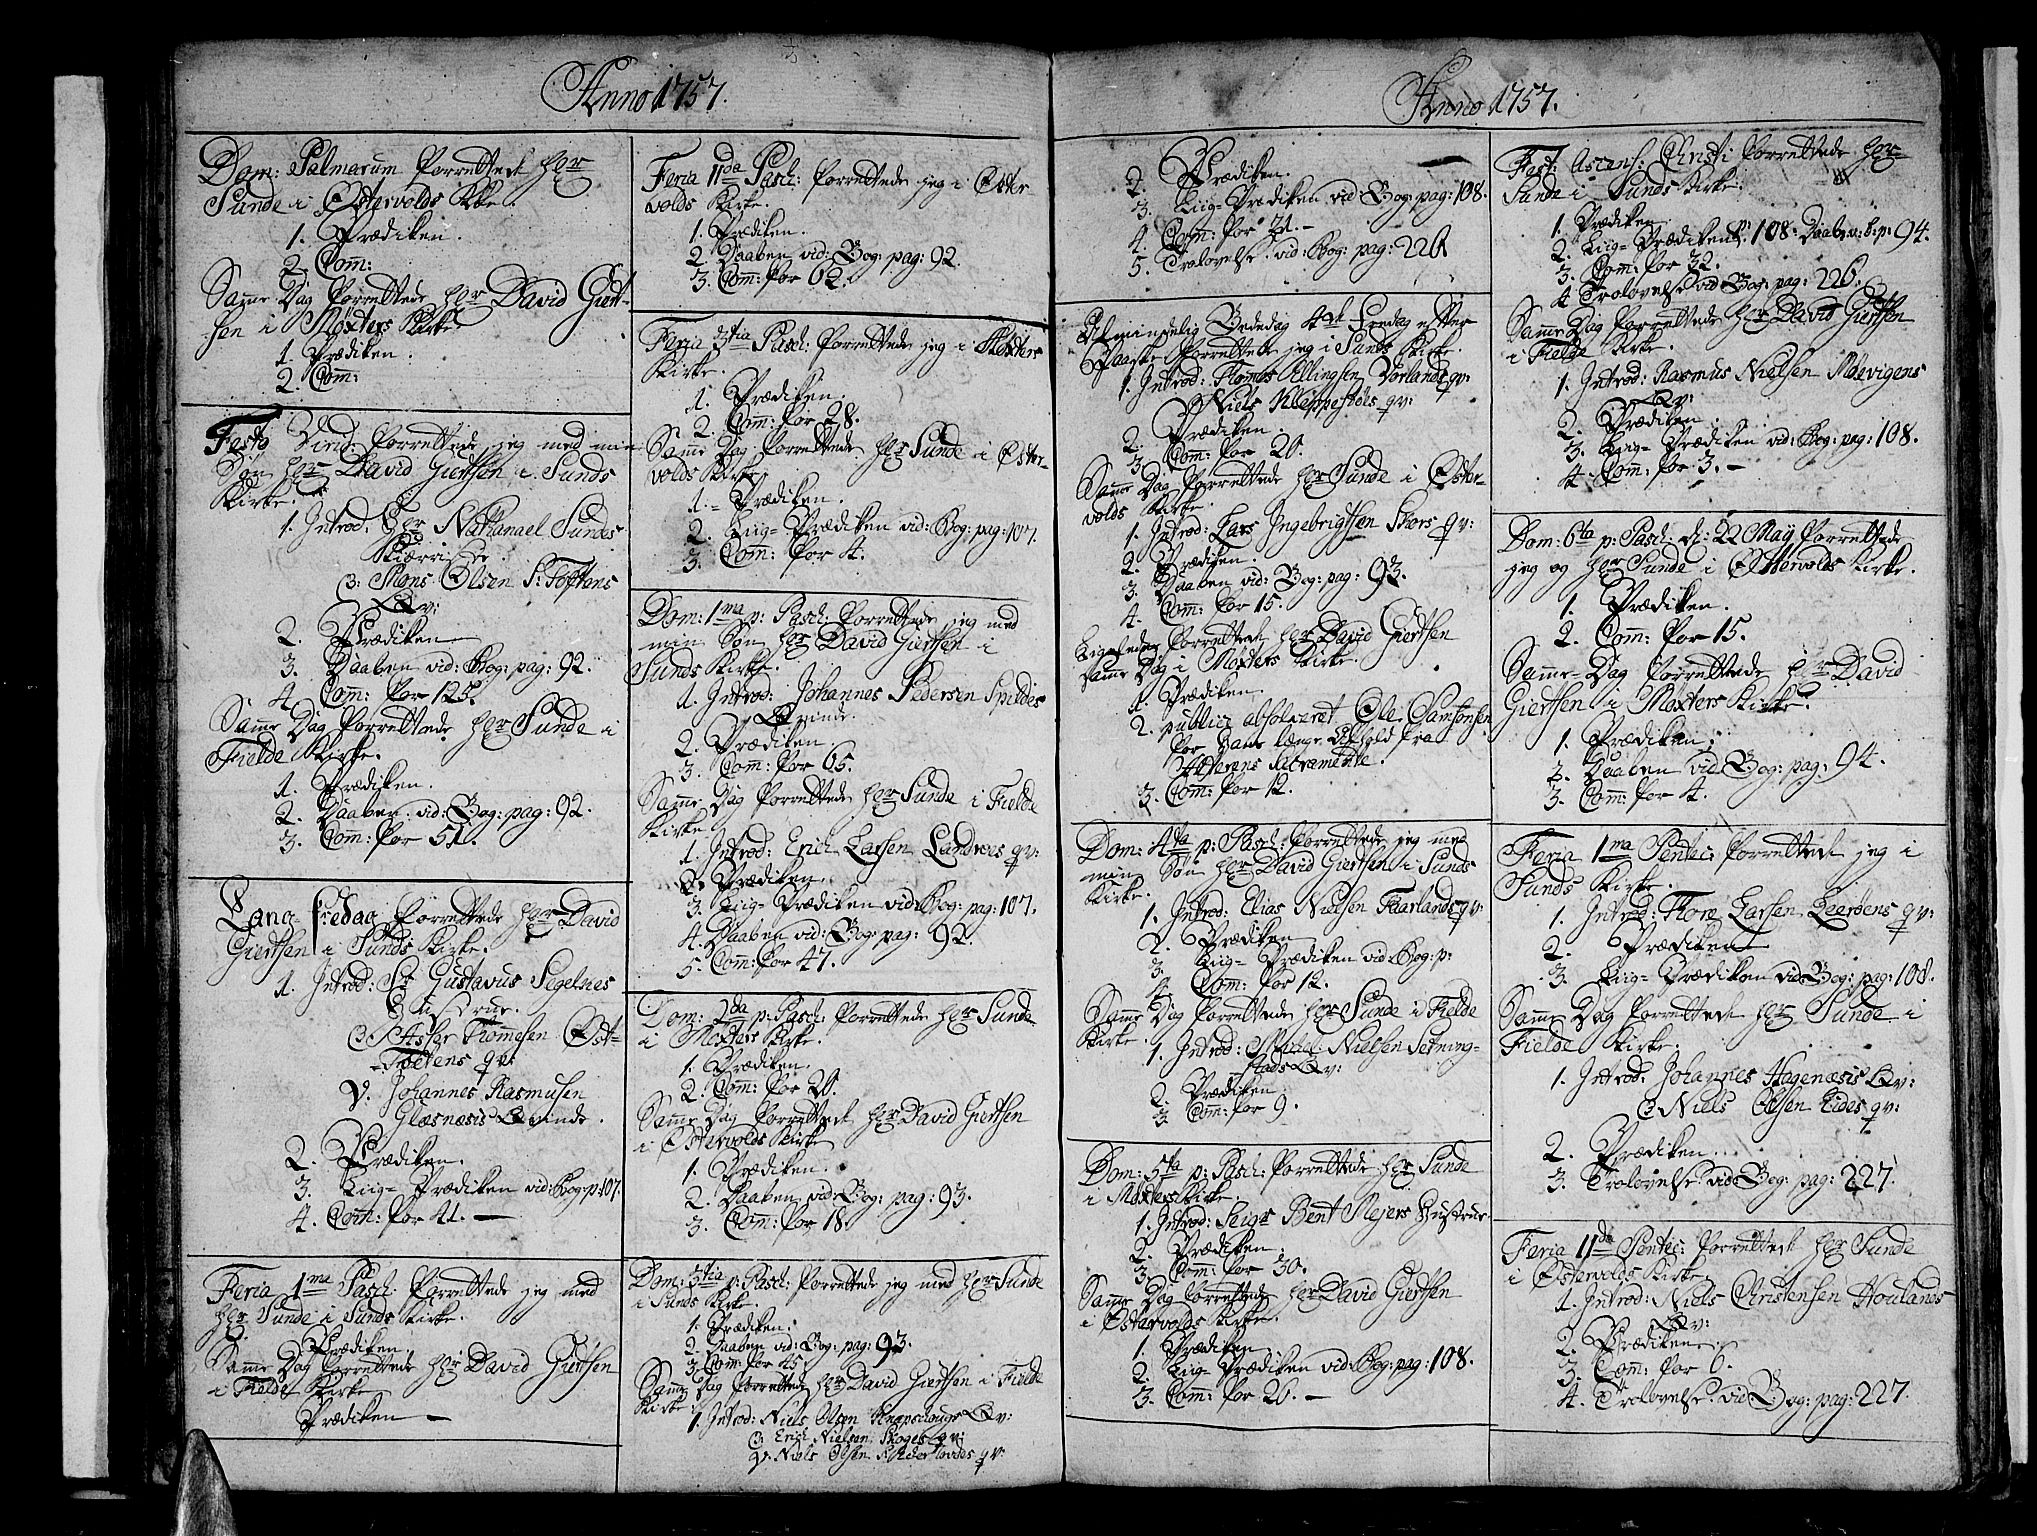 Anno 1757.
Dom: Palmarum Forrettede hr
Sunde i Østervolds Kirke
1. Prædiken.
2. Com:
Samme Dag Forrettede hr David Giert-
sen i Møxters Kirke
1. Prædiken.
2. Com:
Festo Virid: Forrettede jeg med min
Søn hr David Giertsen i Sunds
Kirke.
1. Introd. hr Nathanael Sundes
Kierriste
Mons Olsen S: Toftens
Qv:
2. Prædiken
3. Daaben vid: Bog: pag: 92.
4. Com: for 125.
Samme Dag Forrettede hr Sunde i
Fielde Kirke.
1. Prædiken.
2. Daaben vid: Bog: pag: 92.
3. Com: for 51.
Lang-fredag Forrettede hr David
Giertsen i Sunds Kirke.
1. Introd: Sr Gustavus Segelnes
Hustrue.
Asser Thomesen Øst-
Toftens qv:
Johannes Rasmusen
Glæsnæsis Qvinde.
2. Prædiken.
3. Liig-Prædiken vid: Bog: p: 107.
4. Com: for 41.
Feria 1ma Pasch: Forrettede jeg med
hr Sunde i Sunds Kirke.
Prædiken
Samme Dag Forrettede hr David Giertsen
i Fielde Kirke
Prædiken
Feria 11da Pasch: Forrettede jeg i Øster
volds Kirke.
1. Prædiken.
2. Daaben vid: Bog: pag: 92.
3. Com: for 62.
Feria 3tia Pasch: Forrettede jeg i Møxters
Kirke.
1. Prædiken.
2. Com: for 28.
Samme Dag Forrettede hr Sunde i Øster-
volds Kirke
1. Prædiken.
2. Liig-Prædiken vid: Bog: pag: 107.
3. Com: for 4.
Dom: 1ma p: Pasch: Forrettede jeg med
min Søn hr David Giertsen i
Sunds Kirke.
1. Introd: Johannes Pedersen Spildes
Qvinde.
2. Prædiken
3. Com: for 65.
Samme Dag Forrettede hr Sunde i Fielde
Kirke
1. Introd: Erich Larsen Landroes qv:
2. Prædiken.
3. Liig-Prædiken vid: Bog: pag: 107.
4. Daaben vid: Bog: pag: 92.
5. Com: for 47.
Dom: 2da p: Pasch: Forrettede hr Sunde
i Møxters Kirke.
1. Prædiken.
2. Com: for 20.
Samme Dag Forrettede hr David Giertsen
i Østervolds Kirke
1. Prædiken.
2. Daaben vid: Bog: pag: 93.
3. Com: for 18.
Dom: 3tia p: Pasch: Forrettede jeg med hr Sunde
i Sunds Kirke.
1. Prædiken.
2. Daaben vid: Bog: pag: 93.
3. Com: for 45.
Samme Dag Forrettede hr David Giertsen i Fielde
Kirke
1. Introd: Niels Olsen Knapschougs Qv:
Erich Nielsen Skoges qv:
Niels Olsen qv:
Anno 1757.
2. Prædiken.
3. Liig-Prædiken vid: Bog: pag: 108.
4. Com: for 21.
5. Trolovelse vid: Bog: pag: 226
Almindelig Bededag 4de Fredag efter
Paaske Forrettede jeg i Sunds Kirke.
1. Introd: Thomas Ellingsen Vorlands qv:
Niels Kleppesdøes qv:
2. Prædiken.
3. Com: for 20.
Samme Dag Forrettede hr Sunde i Øster-
volds Kirke.
1. Introd: Lars Ingebrigtsen Skors qv:
2. Prædiken.
3. Daaben vid: Bog: pag: 93.
4. Com: for 15.
Ligeledes Forrettede hr David Giertsen
samme Dag i Møxters Kirke.
1. Prædiken
2. publicè absolveret Ole Samsonsen
for hans længe Ophold fra
Alterens Sacramente.
3. Com: for 12.
Dom: 4ta p: Pasch: Forrettede jeg med
min Søn hr David Giertsen i Sunds
Kirke.
1. Introd: Elias Nielsen Faarlands qv:
2. Prædiken
3. Liig-Prædiken vid Bog: p:
4. Com: for 12.
Samme Dag Forrettede hr Sunde i Fielde
Kirke.
1. Introd: Michel Nielsen Setning-
stads Qv:
2. Prædiken
3. Com: for 9.
Dom: 5ta p: Pasch: Forrettede hr Sunde
i Møxters Kirke.
1. Introd: Seigr Bent Mejers Hustrue
2. Prædiken.
3. Com: for 30.
Samme Dag Forrettede hr David Giertsen
i Østervolds Kirke.
1. Prædiken
2. Liig-Prædiken vid: Bog: pag: 108.
3. Com: for 26.
Fest: Ascens: Christi Forrettede hr
Sunde i Sunds Kirke.
1. Prædiken.
2. Liig-Prædiken p: 108. Daaben v: b: p: 94.
3. Com: for 32.
4. Trolovelse vid: Bog: pag: 226.
Samme Dag Forrettede hr David Giertsen
i Fielde Kirke.
1. Introd: Rasmus Nielsen Møevigens
Qv:
2. Prædiken.
3. Liig-Prædiken vid: Bog: pag: 108.
4. Com: for 3.
Dom: 6ta p: Pasch: d: 22 Maÿ Forrettede
jeg og hr Sunde i Østervolds Kirke.
1. Prædiken.
2. Com: for 15.
Samme Dag Forrettede hr David
Giertsen i Møxters Kirke.
1. Prædiken.
2. Daaben vid: Bog: pag: 94.
3. Com: for 4.
Feria 1ma Pentec: Forrettede jeg i
Sunds Kirke.
1. Introd: Thore Larsen Leerøens qv:
2. Prædiken
3. Liig-Prædiken vid: Bog: pag: 108.
Samme Dag Forrettede hr Sunde i
Fielde Kirke.
1. Introd. Johannes Hagenæsis Qv:
Niels Olsen Eides qv:
2. Prædiken
3. Trolovelse vid: Bog: pag: 227.
Feria 11da Pentec: Forrettede hr Sunde
i Østervolds Kirke
1. Introd: Niels Christensen Houlands
Qv:
2. Prædiken.
3. Com: for 6.
4. Trolovelse vid: Bog: pag: 227.